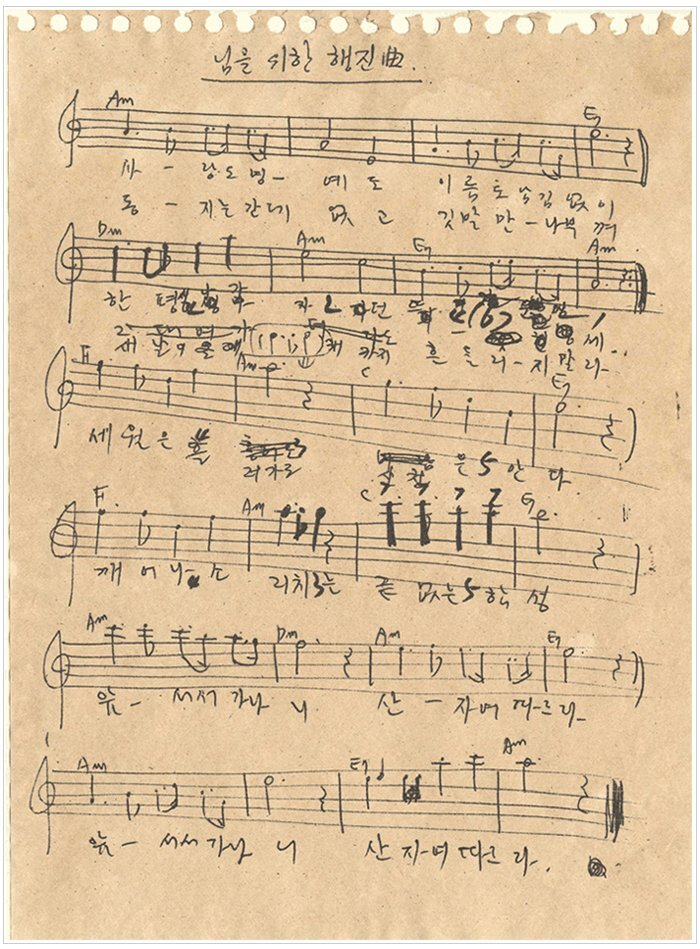 님을 위한 행진曲.
Am E7
사 - 랑도 명- 예도 이름도 남김없이
동 - 지는 간데 없고 깃발만 -나부껴
Dm Am E7 Am
한 평생 나가자던 뜨 맹세
세 날이 올 때 까지 흔들리-지말라..
F Am C E7
세월은 흘러가도 산천은 안다
F Am C E7
깨어나 소리치는 끝없는 함성
Am Dm Am E7
앞- 서서 가나니 산 - 자여 따르라-
Am E7 Am
앞- 서서 가나니 산자-여 따르라.